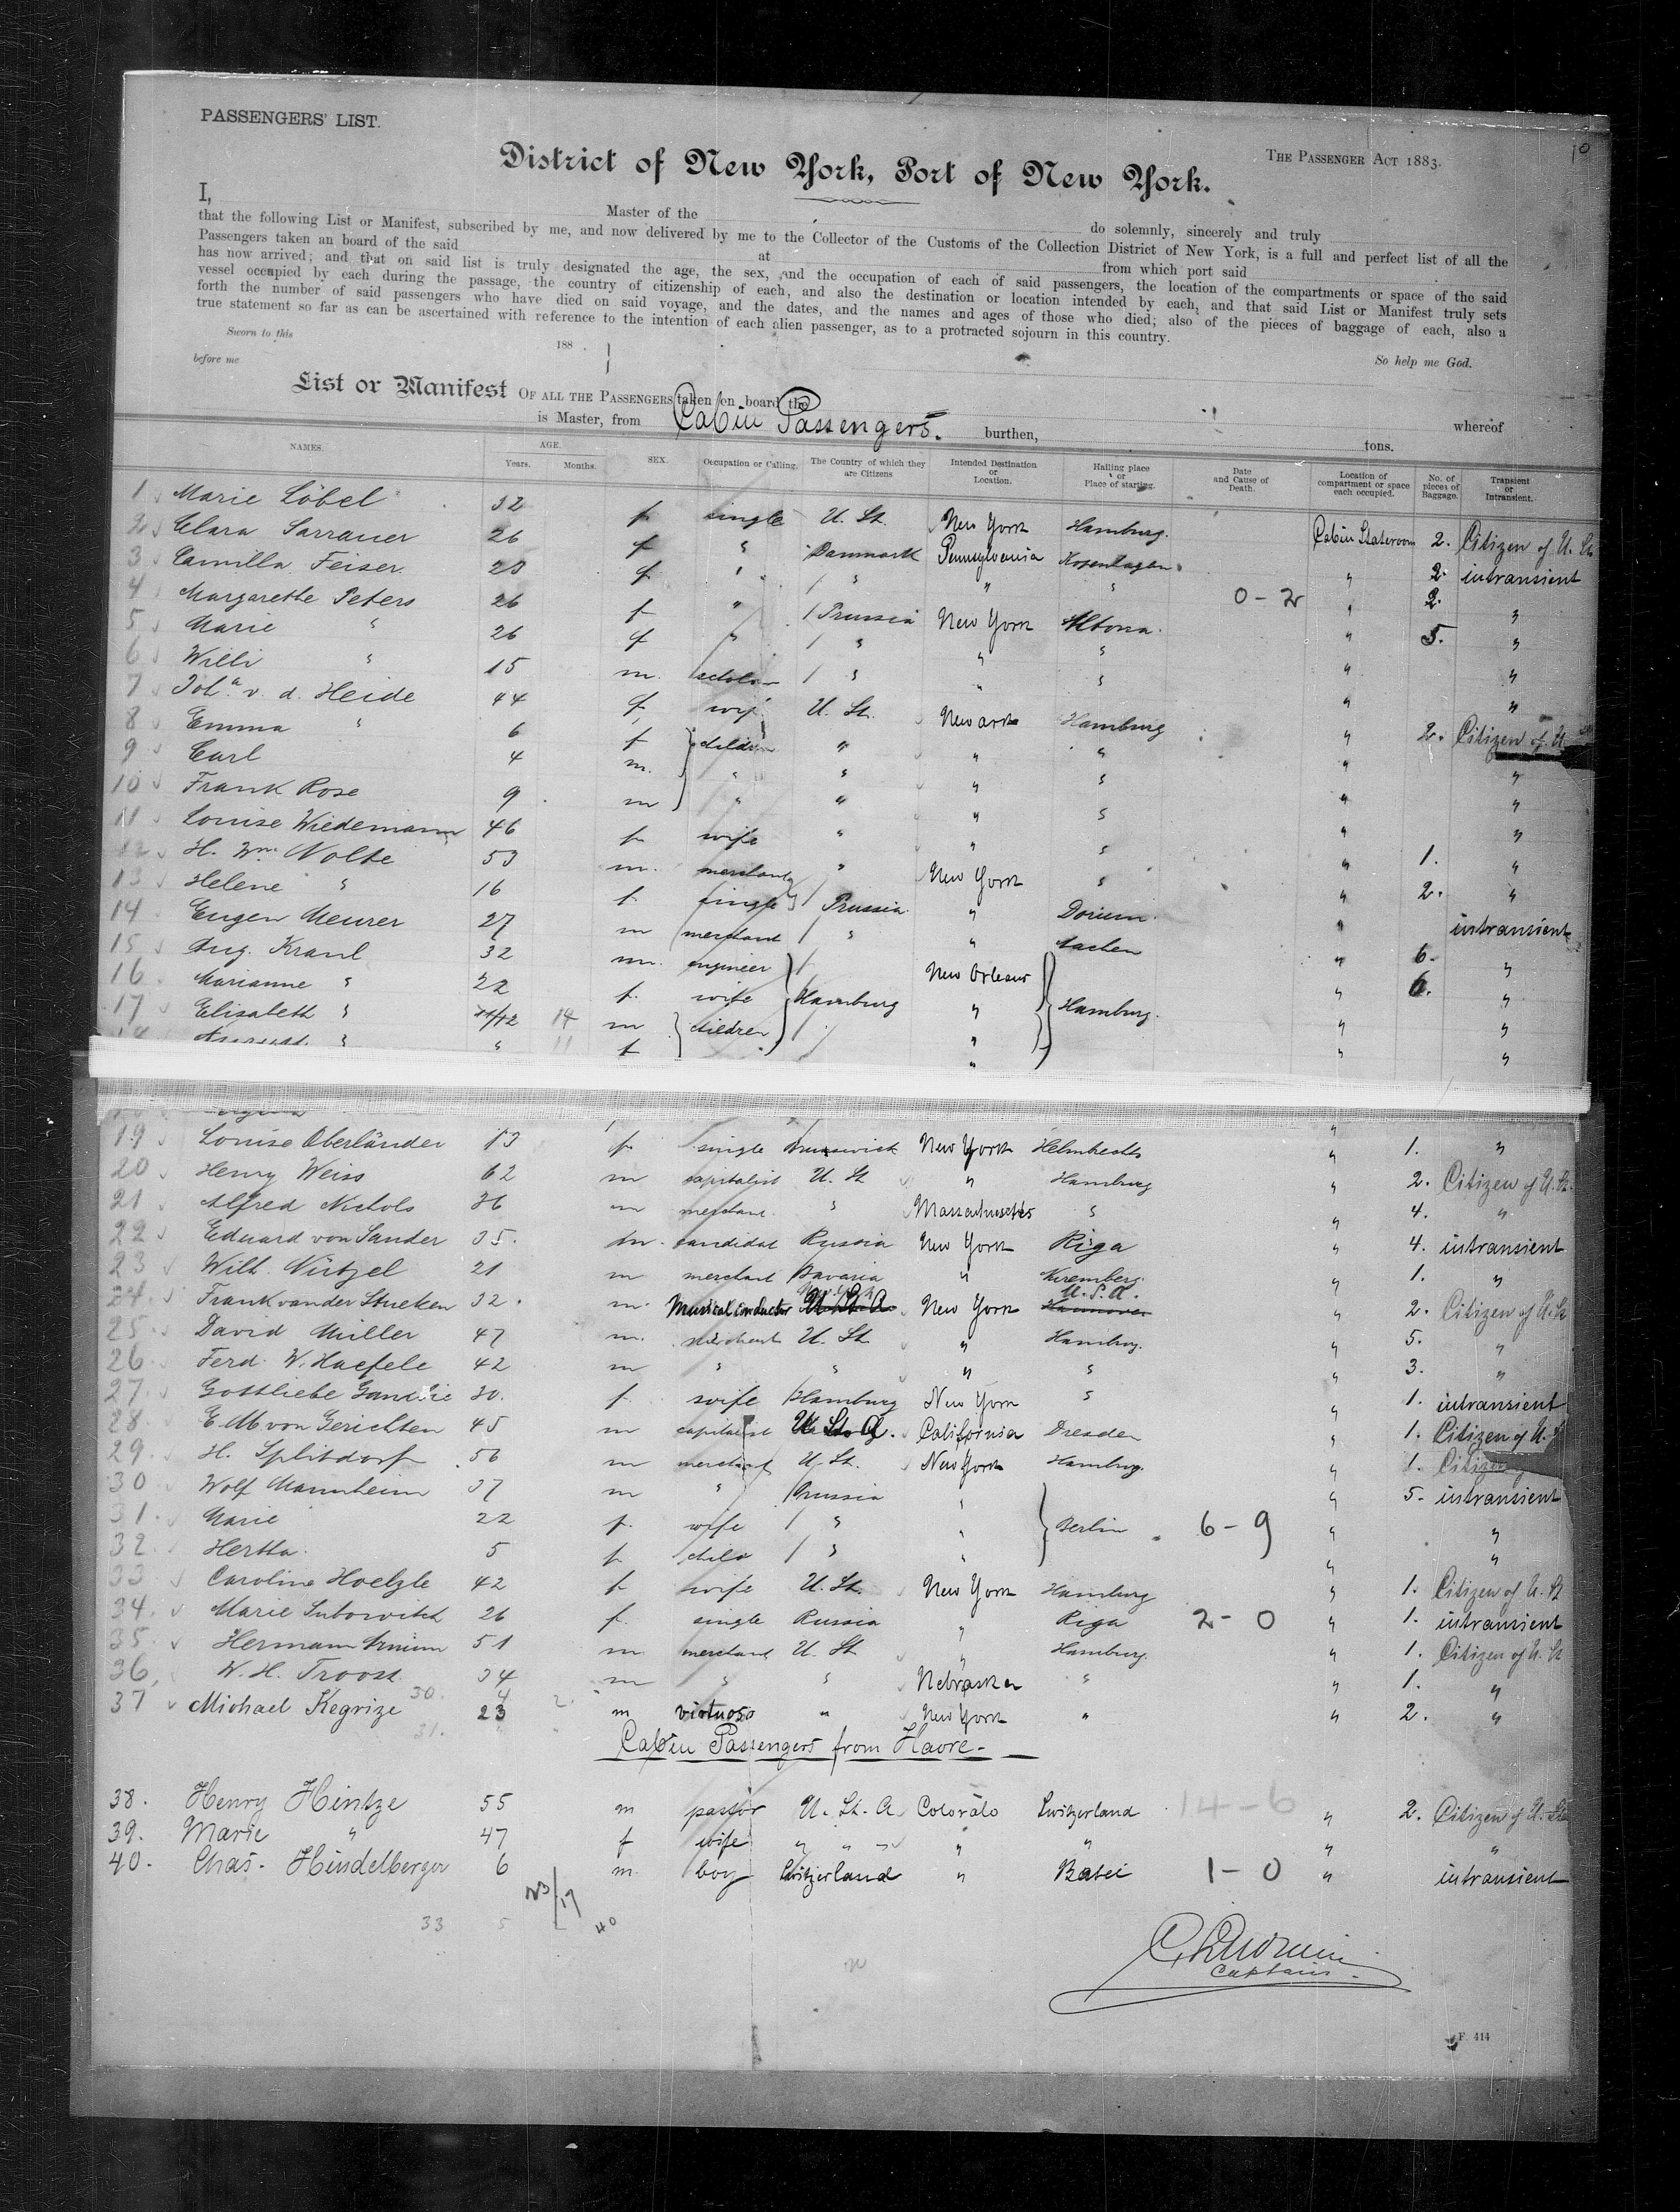 PASSENGERS' LIST.
THE PASSENGER ACT 1883.
District of New York, Port of New York.
I, Master of the do solemnly, sincerely and truly
that the following List or Manifest, subscribed by me, and now delivered by me to the Collector of the Customs of the Collection District of New York, is a full and perfect list of all the
Passengers taken an board of the said at from which port said
has now arrived; and that on said list is truly designated the age, the sex, and the occupation of each of said passengers, the location of the compartments or space of the said
vessel occupied by each during the passage, the country of citizenship of each, and also the destination or location intended by each, and that said List or Manifest truly sets
forth the number of said passengers who have died on said voyage, and the dates, and the names and ages of those who died; also of the pieces of baggage of each, also a
true statement so far as can be ascertained with reference to the intention of each alien passenger, as to a protracted sojourn in this country.
Sworn to this 188 .
before me So help me God.
List or Manifest OF ALL THE PASSENGERS taken on board the whereof
is Master, from Cabin Passengers. burthen, tons.
NAMES. AGE. Years. Months. SEX. Occupation or Calling. The Country of which they are Citizens Intended Destination or Location. Hailing place or Place of starting. Date and Cause of Death. Location of compartment or space each occupied. No. of pieces of Baggage. Transient or Intransient.
1 Marie Löbel 32 f. single U. St. New York Hamburg. Cabin Stateroom 2. Citizen of U. St.
2 Clara Sarrauer 26 f " Danmark Pennsylvania Kopenhagen " 2. intransient
3 Camilla Feiser f " " " " 0-2 " 2. "
4 Margarethe Peters 26 f " Prussia New York Altona. " 5. "
5 Marie " 26 f " " " " " "
6 Willi " 15 m. " " " " "
7 Joh.a v. d. Heide 44 f wife U. St. Newark Hamburg " 2. Citizen of U.
8 Emma " 6 f children " " " " "
9 Carl 4 m. " " " " " "
10 Frank Rose 9 m " " " " " "
11 Louise Wiedemann 46 f. wife " " " " 1. "
12 H. Wm. Nolte 53 m. merchant " New York " " 2. "
13 Helene " 16 f. single Prussia " Dorum. " intransient
14 Eugen Meurer 27 m merchant " " Aachen " 6. "
15 Aug. Kraul 32 m. engineer New Orleans " 6. "
16 Marianne " 22 f. wife Hamburg " Hamburg. " "
17 Elisabeth " 11/12 14 m children " " "
18 August " " 11 f "
19 Louise Oberländer 13 f. single Brunswick New York Helmbrechts " 1. "
20 Henry Weiss 62 m capitalist U. St " Hamburg " 2. Citizen of U. St.
21 Alfred Nichols 36 m merchant " Massachusetts " " 4. "
22 Eduard von Sander 35. m. candidat Russia New York Riga " 4. intransient
23 Wilh. Nützel 21 m merchant Bavaria " Nuremberg. " 1. "
24. Frank van der Stucken 32. m. Musical conductor U. St. A. New York U. S. A. Hannover " 2. Citizen of U. St
25 David Müller 47 m. merchant U. St " Hamburg. " 5. "
26 Ferd. W. Haefele 42 m " " " " " 3. "
27 Gottliebe 30. f. wife Hamburg New York " " 1. intransient
28 E. M von Gerichten 45 m capitalist U. St. A. California Dresden " 1. Citizen of U.
29 H. Splitdorf 56 m merchant U. St. New York Hamburg. " 1. Citizen
30 Wolf Mannheim 37 m " Prussia " " 5. intransient
31. Marie 22 f. wife " " Berlin 6-9 " "
32. Hertha. 5 f. child " " " "
33 Caroline Hoelzle 42 f wife U. St. New York Hamburg " 1. Citizen of U. St
34. Marie Subowitch 26 f. single Russia " Riga 2-0 " 1. intransient
35. Hermann 51 m. merchant U. St " Hamburg. " 1. Citizen of U. St
36. W. H. Troost. 34 m " " Nebraska " " 1. "
37 Michael Kegrize 23 m virtuoso " New York " " 2. "
30. 4 2.
31.
Cabin Passengers from Havre.
38. Henry Hintze 55 m pastor U. St. A. Colorado Switzerland 14-6 " 2. Citizen of U. St
39. Marie " 47 f wife " " " " " " "
40. Chas. Hindelberger 6 m. boy Switzerland " Basel 1-0 " intransient
23/17
33 5 40
Captain.
F. 414